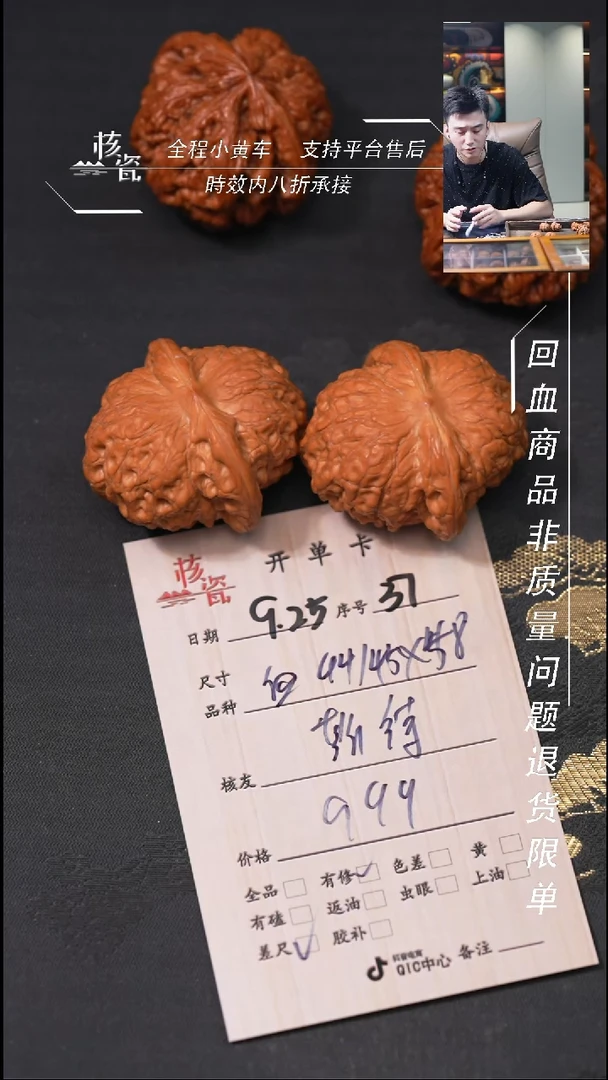 核瓷
全程小黄车 支持平台售后
時效内八折承接
回血商品非质量问题退货限单
核瓷
开单卡
日期 9.25 序号 37
尺寸 44/45×58
品种
期待
核友
999
价格
全品 有修✓ 色差 黄
有磕 返油 虫眼 上油
差尺✓ 胶补
抖音电商
QIC中心 备注